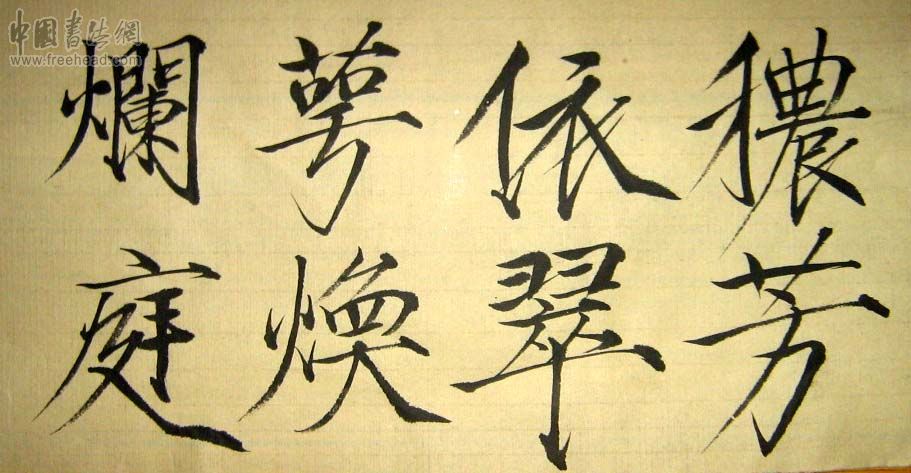 穠芳
依翠
萼煥
爛庭
中国书法網
www.freehead.com